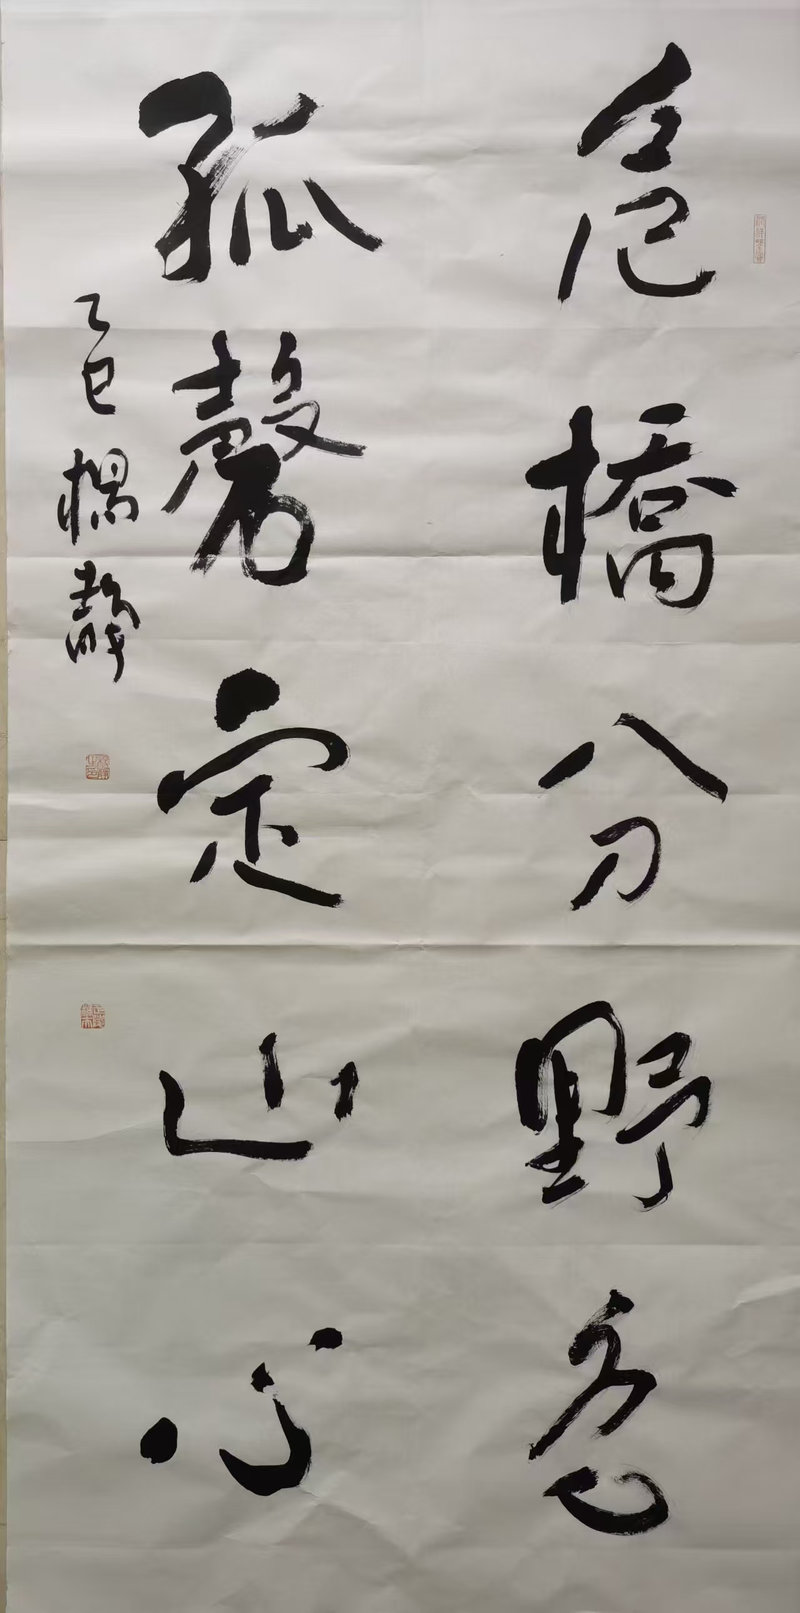 危橋分野色
孤磬定山心
乙巳楊靜